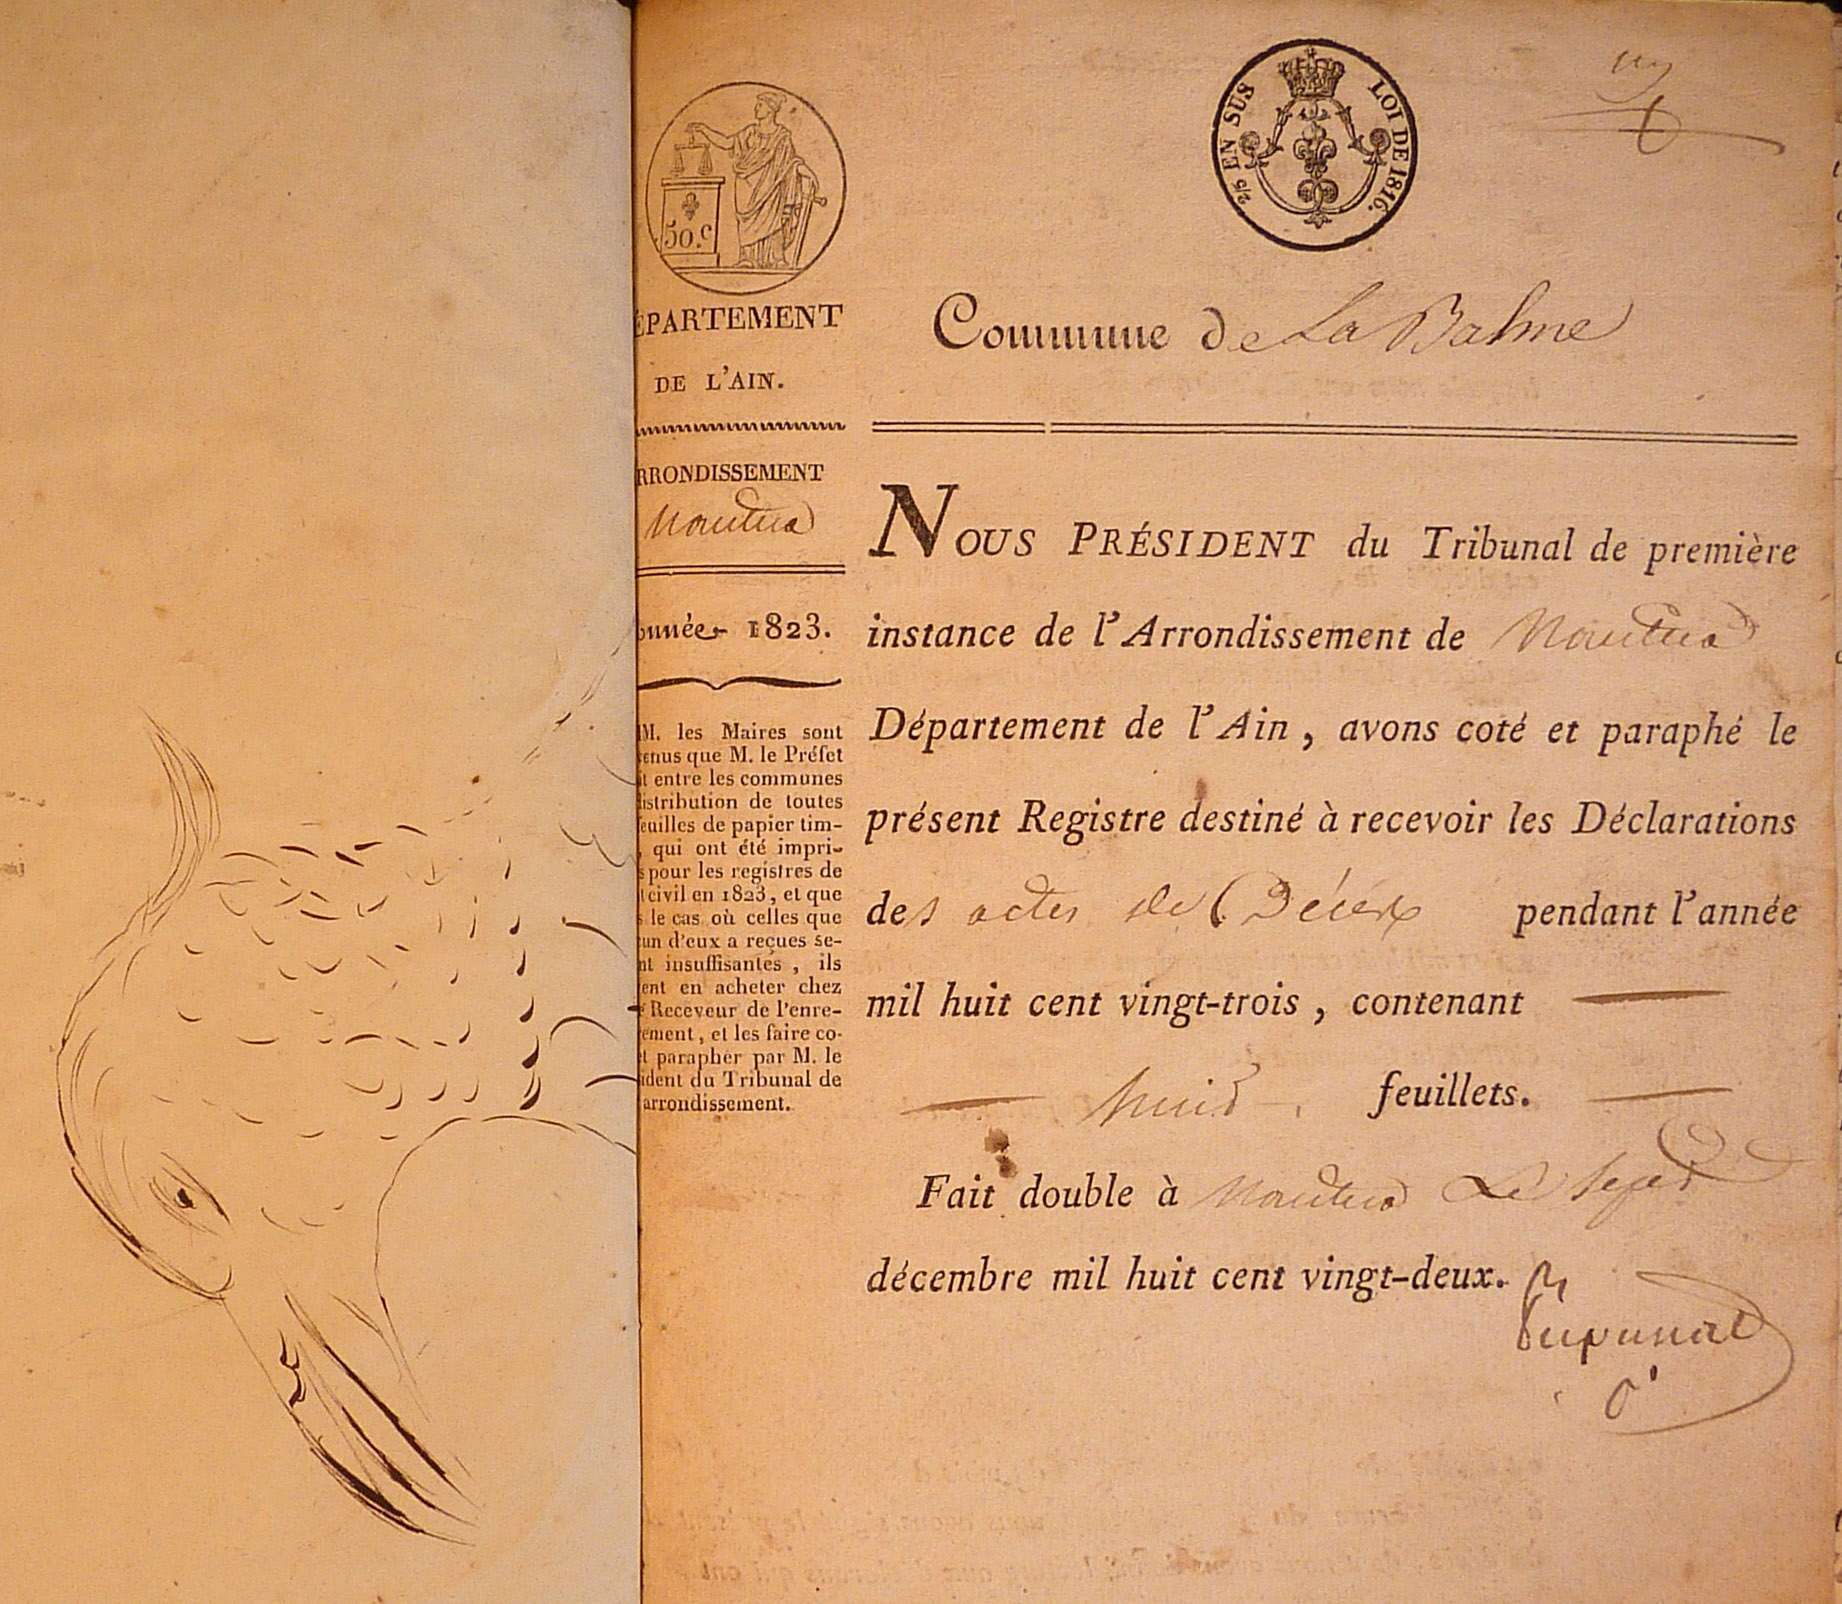 50.c
2/5 EN SUS LOI DE 1816.
EPARTEMENT
DE L'AIN.
RRONDISSEMENT
Nantua
nnée 1823.
M. les Maires sont
enus que M. le Préfet
t entre les communes
istribution de toutes
euilles de papier tim-
, qui ont été impri-
s pour les registres de
t civil en 1823, et que
s le cas où celles que
un d'eux a reçues se-
nt insuffisantes, ils
ent en acheter chez
Receveur de l'enre-
ement, et les faire co-
et parapher par M. le
ident du Tribunal de
arrondissement.
Commune de La Balme
NOUS PRÉSIDENT du Tribunal de première
instance de l'Arrondissement de Nantua
Département de l'Ain, avons coté et paraphé le
présent Registre destiné à recevoir les Déclarations
des actes de Décès pendant l'année
mil huit cent vingt-trois, contenant
huit feuillets.
Fait double à Nantua Le sept
décembre mil huit cent vingt-deux.